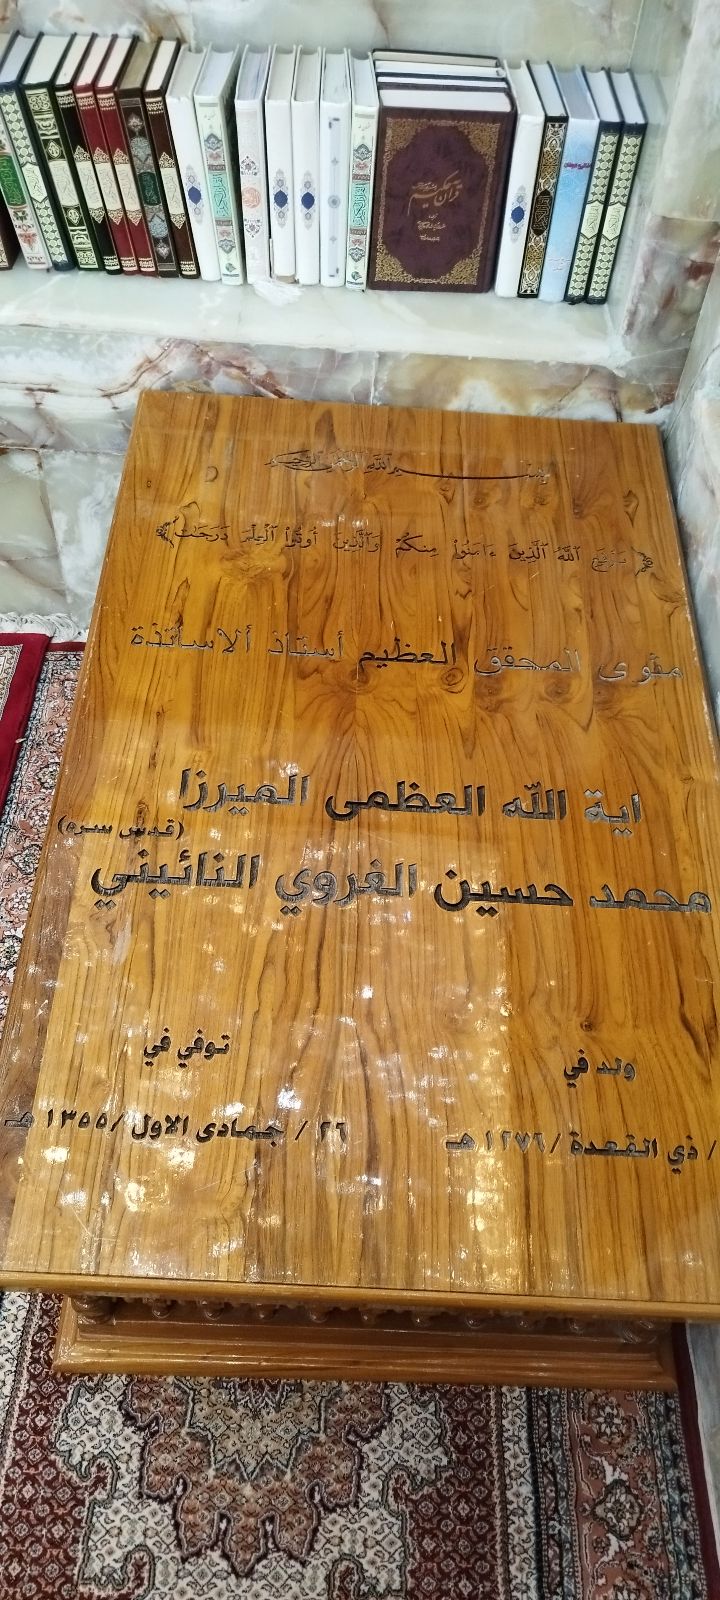 قرآن حکیم
بسم الله الرحمن الرحيم
﴿يَرْفَعِ ٱللَّهُ ٱلَّذِينَ ءَامَنُوا۟ مِنكُمْ وَٱلَّذِينَ أُوتُوا۟ ٱلْعِلْمَ دَرَجَـٰتٍ﴾
مثوى المحقق العظيم أستاذ ألاساتذة
اية الله العظمى الميرزا
(قدس سره)
محمد حسين الغروي النائيني
ولد في
توفي في
/ ذي القعدة /١٢٧٦ هـ
٢٦ / جمادى الاول /١٣٥٥ هـ